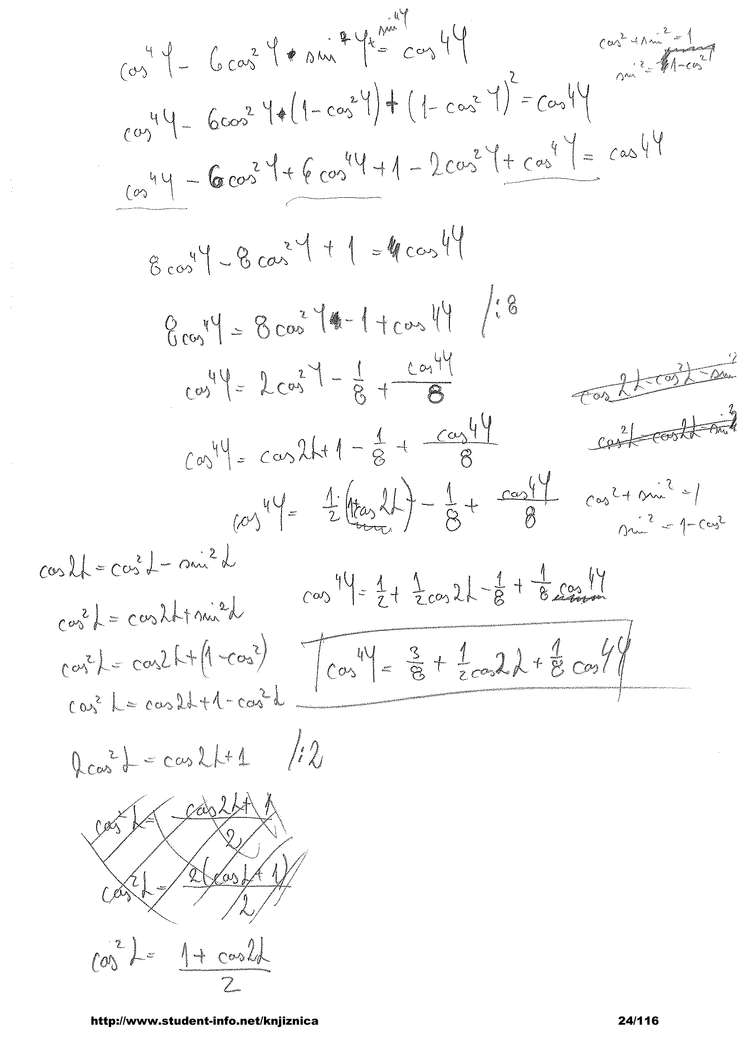 cos⁴φ - 6cos²φ • sin²φ + sin⁴φ = cos4φ
cos² + sin² = 1
sin² = 1-cos²
cos⁴φ - 6cos²φ•(1-cos²φ)+(1-cos²φ)² = cos4φ
cos⁴φ - 6cos²φ + 6cos⁴φ + 1 - 2cos²φ + cos⁴φ = cos4φ
8cos⁴φ - 8cos²φ + 1 = cos4φ
8cos⁴φ = 8cos²φ - 1 + cos4φ /:8
cos⁴φ = 2cos²φ - 1/8 + cos4φ/8
cos2α = cos²α - sin²
cos²α = cos2α - sin²
cos⁴φ = cos2α + 1 - 1/8 + cos4φ/8
cos⁴φ = 1/2 (1+cos2α) - 1/8 + cos4φ/8
cos² + sin² = 1
sin² = 1-cos²
cos⁴φ = 1/2 + 1/2 cos2α - 1/8 + 1/8 cos4φ
cos⁴φ = 3/8 + 1/2 cos2α + 1/8 cos4φ
cos2α = cos²α - sin²α
cos²α = cos2α + sin²α
cos²α = cos2α + (1-cos²)
cos²α = cos2α + 1 - cos²α
2cos²α = cos2α + 1 /:2
cos²α = cos2α + 1/2
cos²α = 2(cosα + 1)/2
cos²α = 1 + cos2α/2
http://www.student-info.net/knjiznica 24/116